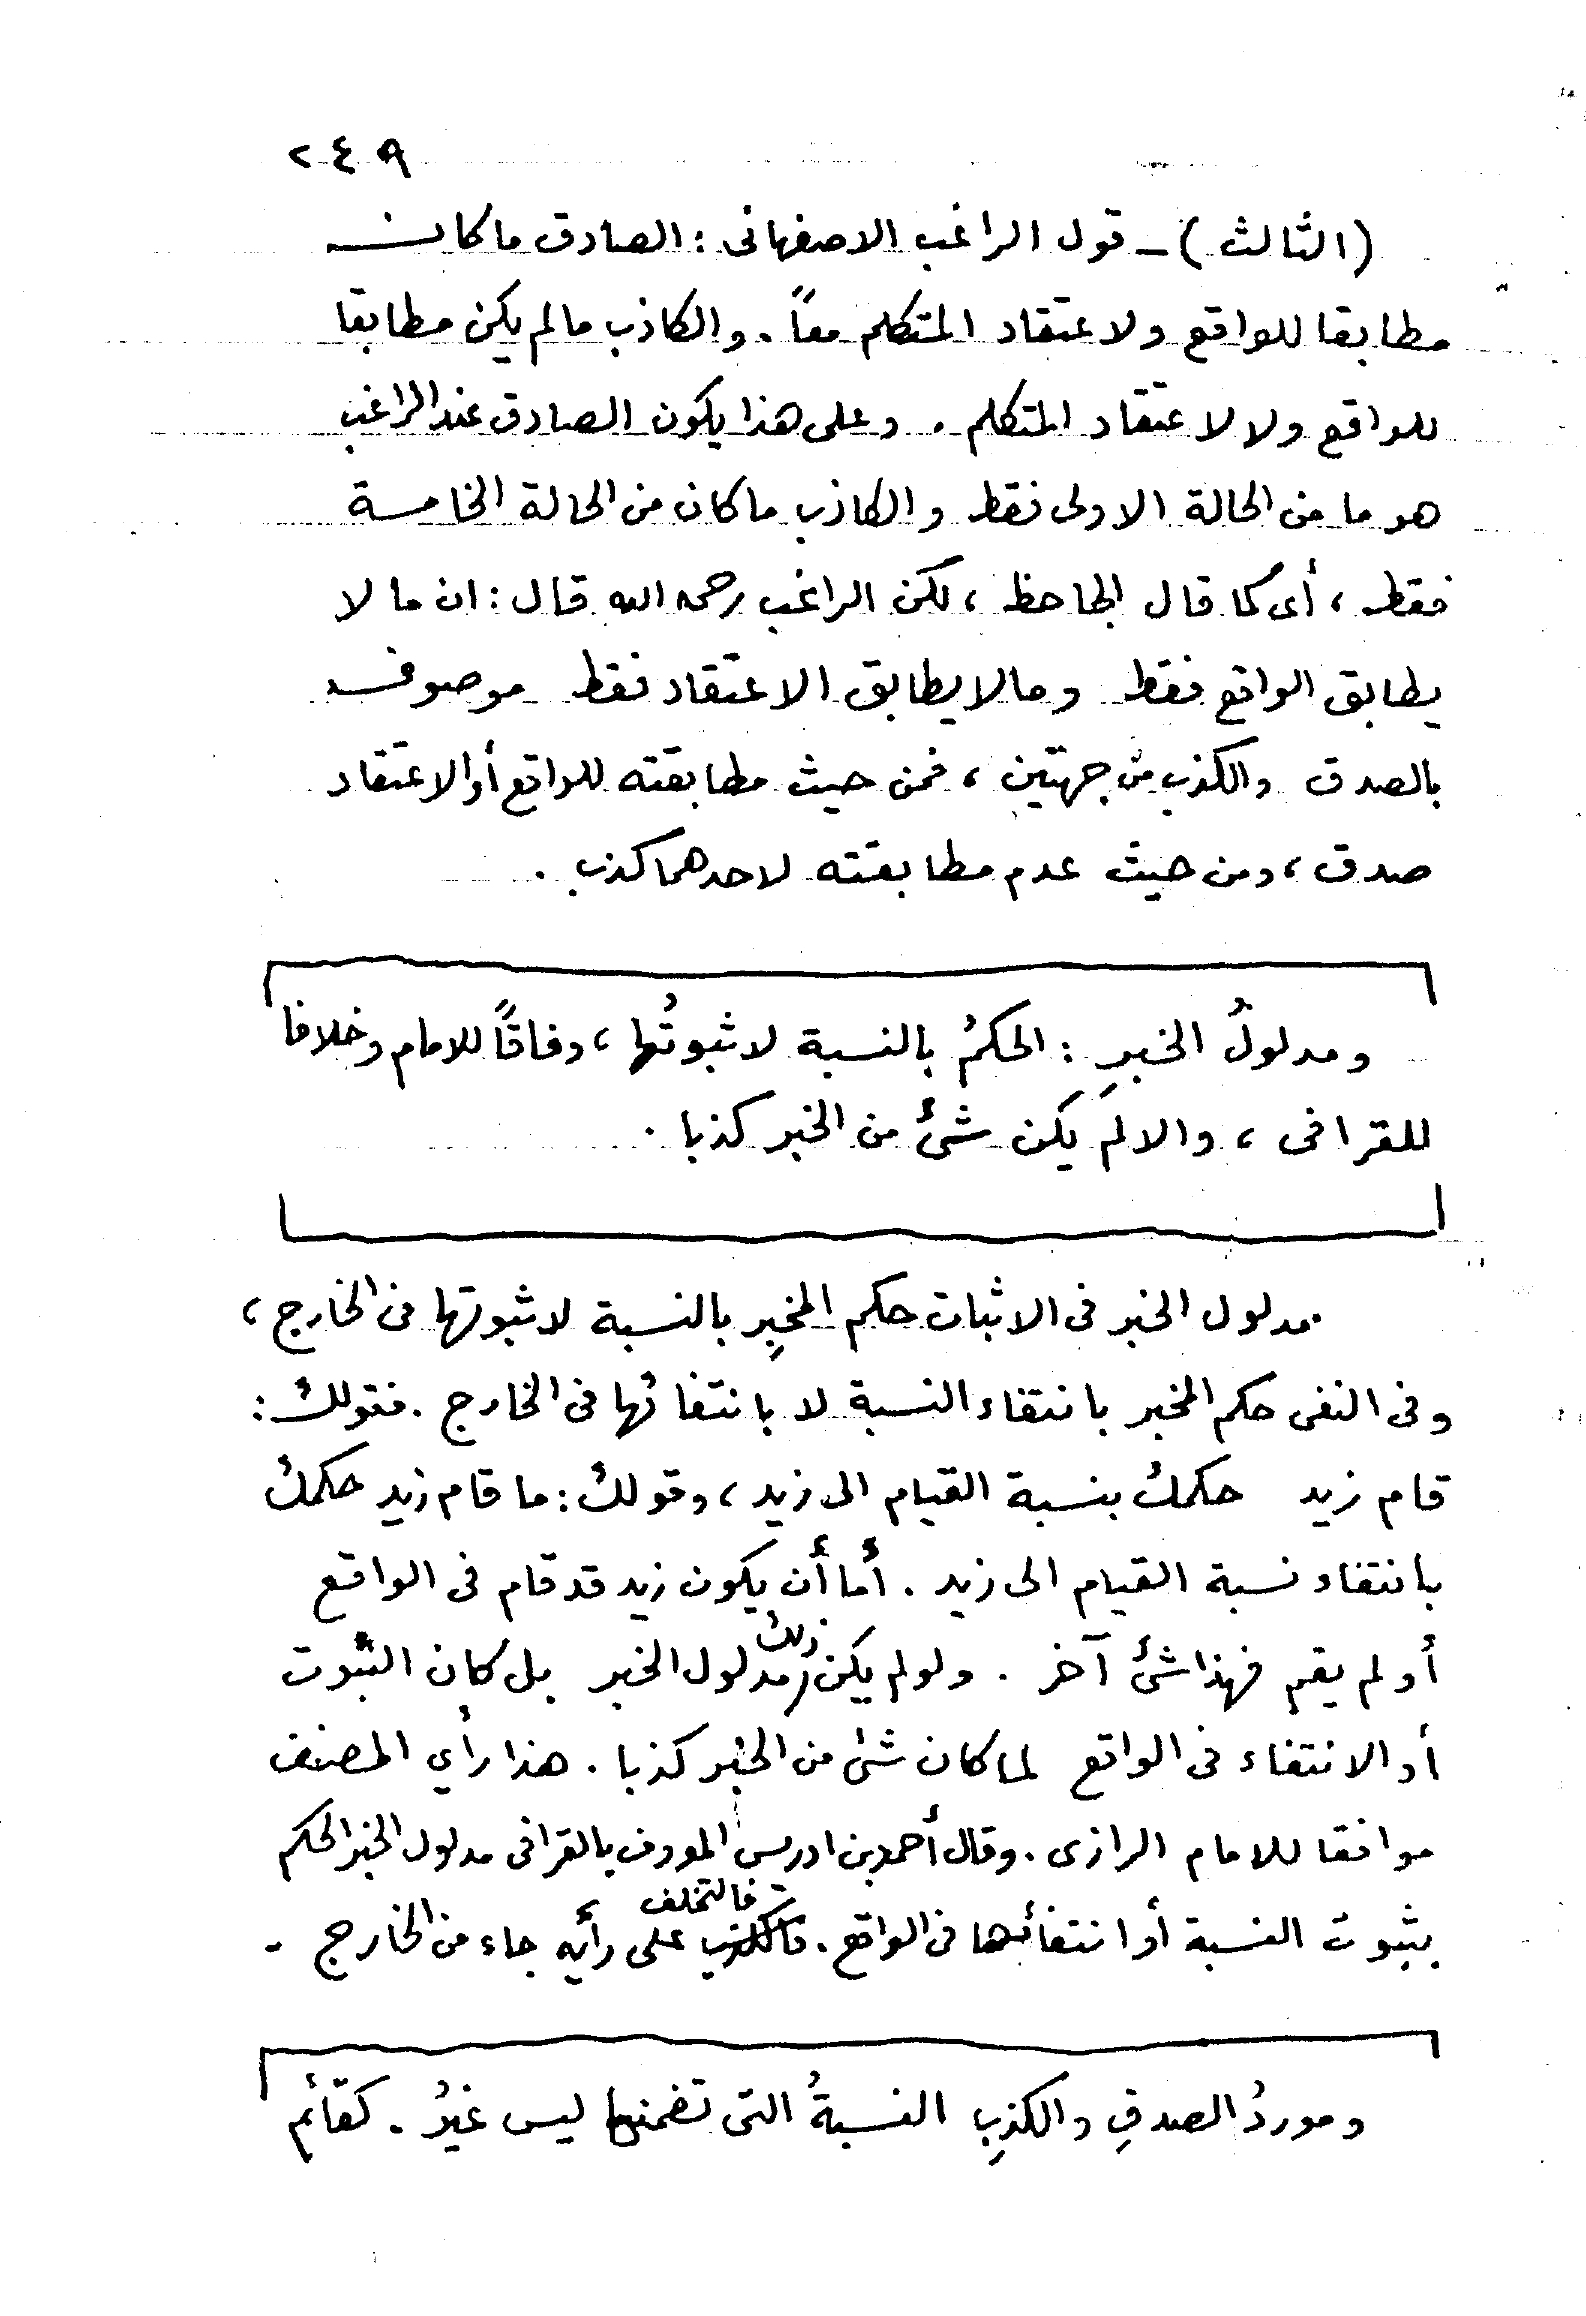 ٢٤٩
(الثالث) - قول الراغب الاصفهانى : الصادق ما كان
مطابقا للواقع ولاعتقاد المتكلم معاً . والكاذب مالم يكن مطابقا
للواقع ولا لاعتقاد المتكلم . وعلى هذا يكون الصادق عند الراغب
هو ما من الحالة الاولى فقط والكاذب ما كان من الحالة الخامسة
فقط ، أى كما قال الجاحظ ، لكن الراغب رحمه الله قال : ان ما لا
يطابق الواقع فقط وما لا يطابق الاعتقاد فقط موصوف
بالصدق والكذب من جهتين ، فمن حيث مطابقته للواقع أو الاعتقاد
صدق ، ومن حيث عدم مطابقته لاحدهما كذب .
ومدلولُ الخبرِ : الحكمُ بالنسبة لا ثبوتُها ، وفاقاً للامام وخلافا
للقرافى ، والا لم يكن شئ من الخبر كذبا .
مدلول الخبر فى الاثبات حكم المخبِر بالنسبة لا ثبوتها فى الخارج ،
وفى النفى حكم المخبر بانتفاء النسبة لا بانتفائها فى الخارج . فقولك :
قام زيد حكمك بنسبة القيام الى زيد ، وقولك : ما قام زيد حكمك
بانتفاء نسبة القيام الى زيد . أما أن يكون زيد قد قام فى الواقع
أو لم يقم فهذا شئ آخر . ولو لم يكن ذلك مدلول الخبر بل كان الثبوت
أو الانتفاء فى الواقع لما كان شئ من الخبر كذبا . هذا رأي المصنف
موافقا للامام الرازى . وقال أحمد بن ادريس المعروف بالقرافى مدلول الخبر الحكم
بثبوت النسبة أو انتفائها فى الواقع . فالتخلف على رأيه جاء من الخارج .
وموردُ الصدقِ والكذبِ النسبةُ التى تضمنها ليس غيرُ . كقائم